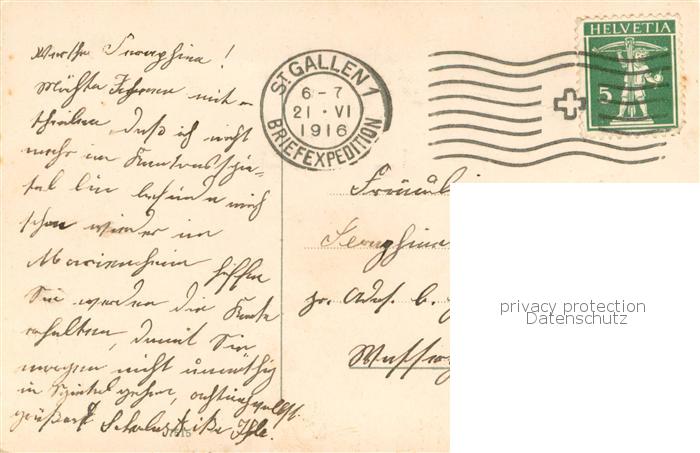 Werthe Seraphina!
Möchte Ihnen mit-
theilen daß ich nicht
mehr im Kantonsspi-
tal bin befinde mich
schon wieder im
Marienheim hoffe
Sie werden die Karte
erhalten, damit Sie
morgen nicht unnöthig
in Spital gehen, achtungsvollst
grüßt
HELVETIA
5
ST GALLEN 1
6-7
21·VI
1916
BRIEFEXPEDITION
Fräulein
Seraphina
pr. Adr. b.
privacy protection
Datenschutz